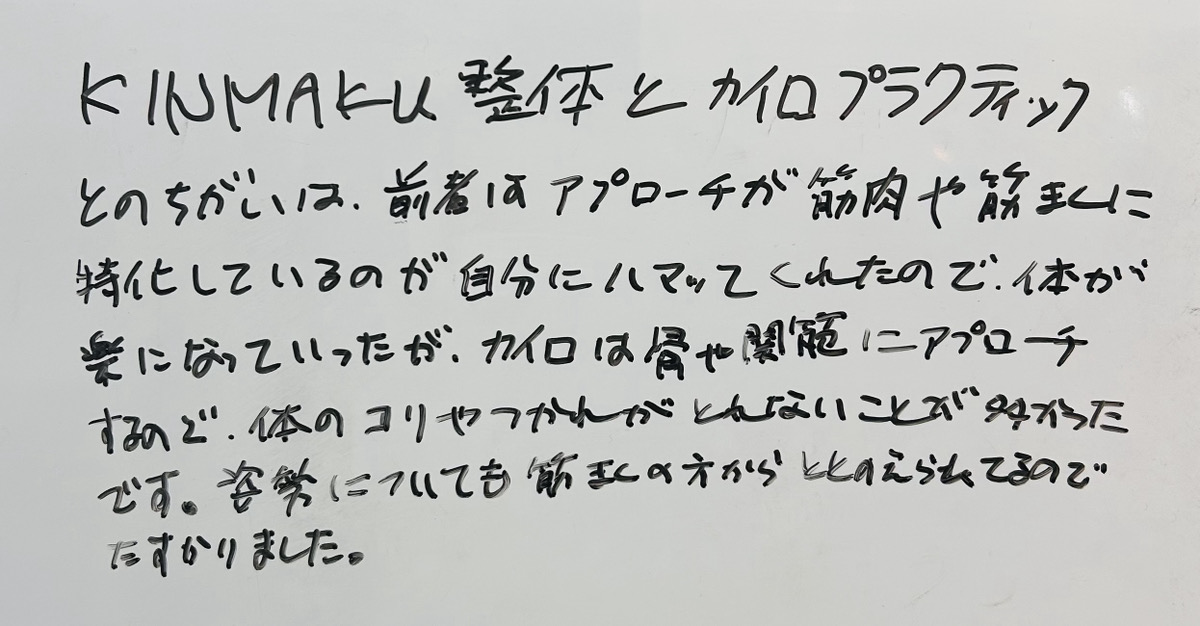 KINMAKU 整体と カイロプラクティック
とのちがいは、前者はアプローチが筋肉や筋まくに
特化しているのが自分にハマッてくれたので、体が
楽になっていったが、カイロは骨や関節にアプローチ
するので、体のコリやつかれがとれないことが多かった
です。姿勢についても筋まくの方からととのえられてるので
たすかりました。